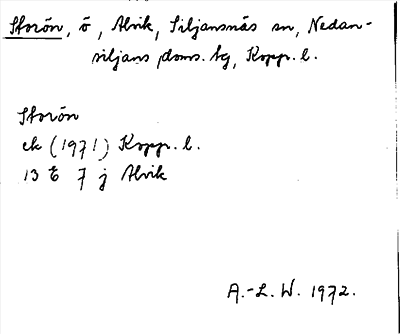 Storön, ö, Alvik, Siljansnäs sn, Nedan-
siljans doms. tg, Kopp. l.
Storön
ek (1971) Kopp. l.
13 E 7 j Alvik
A.-L. W. 1972.